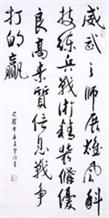 威武之师展雄风科
技练兵战术精装备优
良高素质信息战争
打的赢